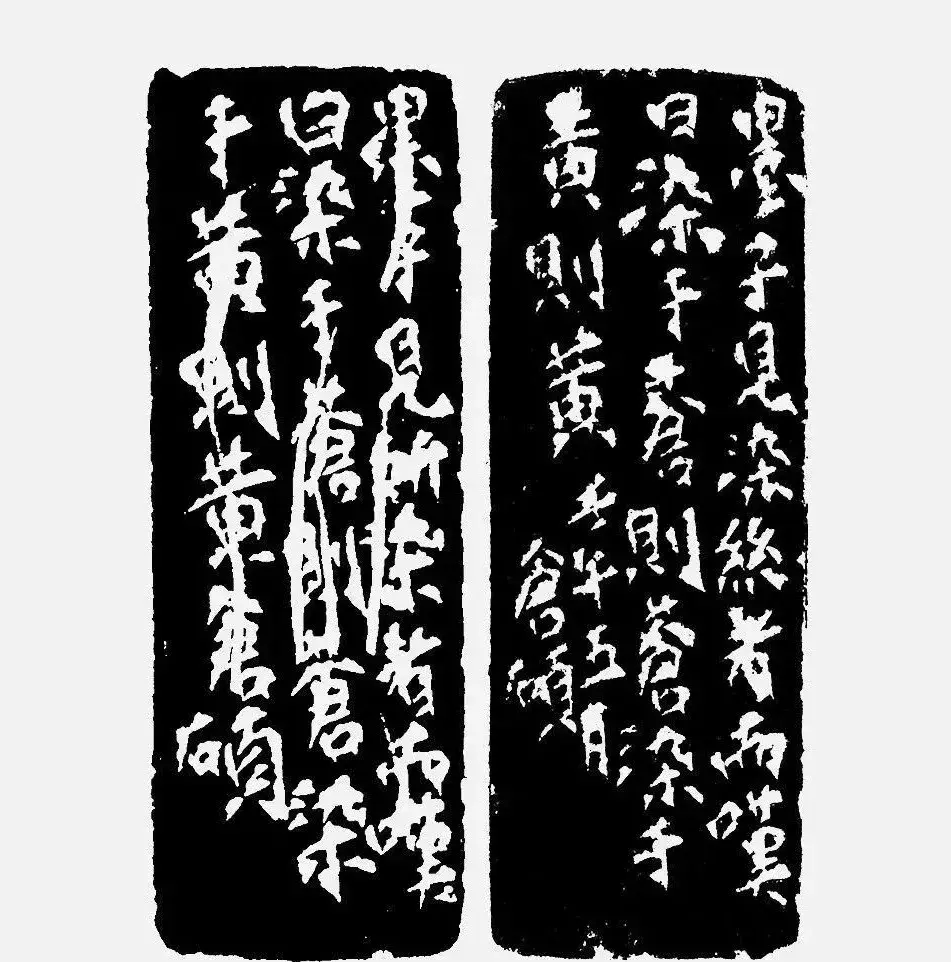 墨子見染絲者而嘆
曰染于蒼則蒼染于
黃則黃 五月
倉碩
墨子見所染者而嘆
曰染于蒼則蒼染
于黃則黃倉碩